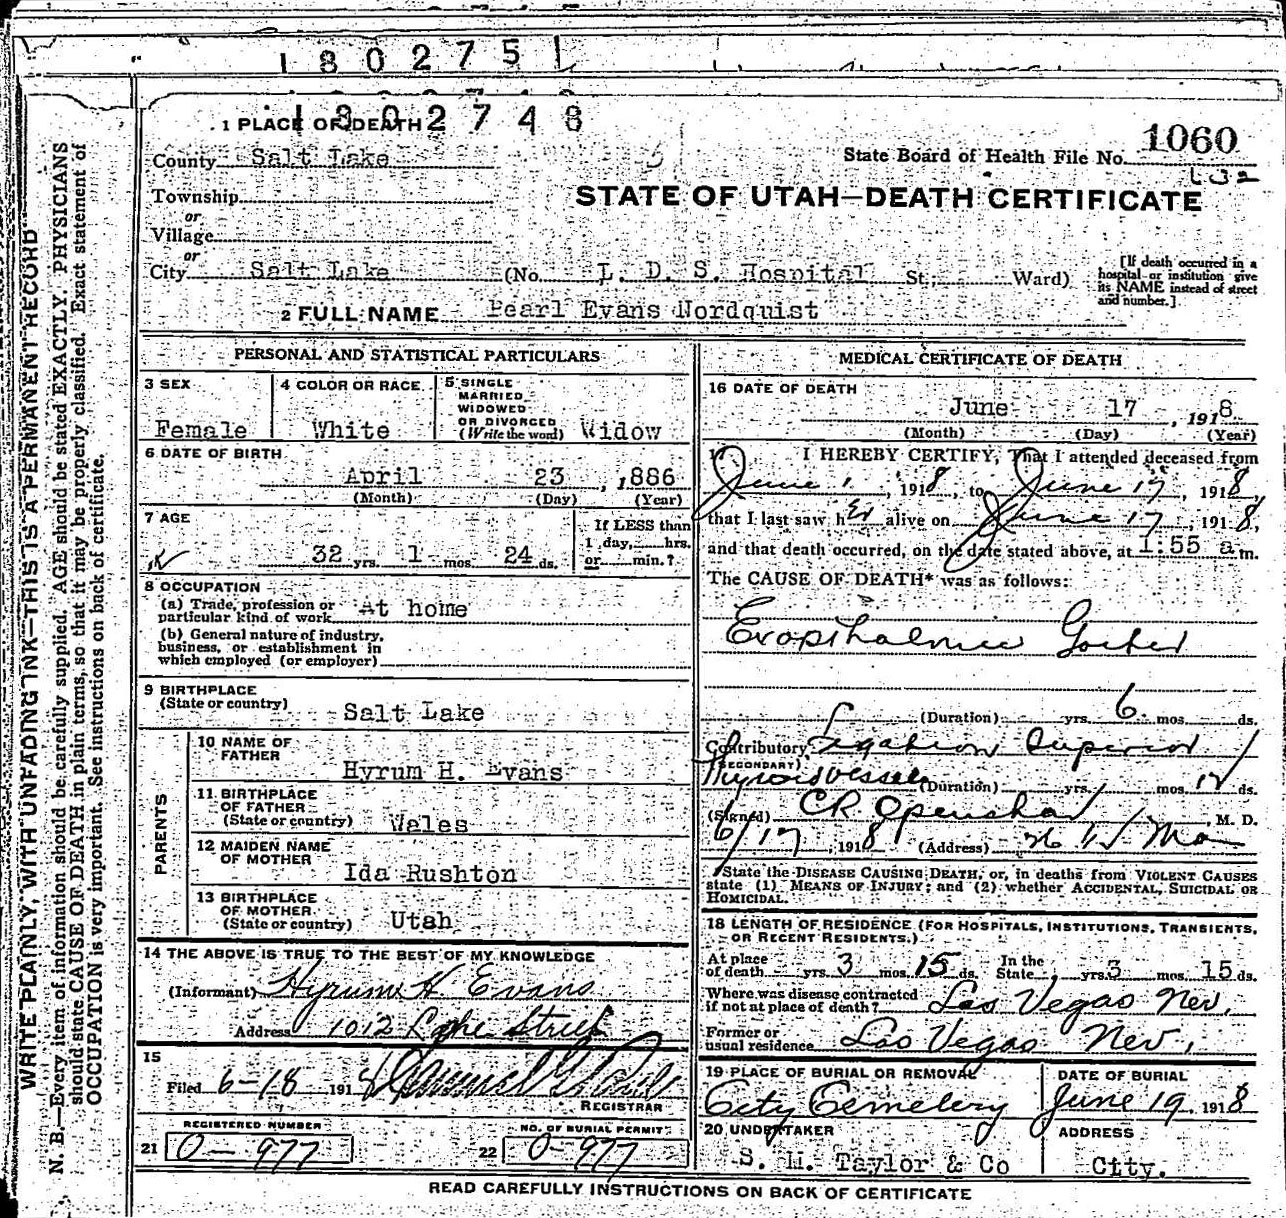 180275
1802748
1 PLACE OF DEATH
County Salt Lake
State Board of Health File No. 1060
Township
or
STATE OF UTAH—DEATH CERTIFICATE
Village
or
City Salt Lake (No. L. D. S. Hospital St; Ward)
[If death occurred in a
hospital or institution give
its NAME instead of street
and number.]
2 FULL NAME Pearl Evans Nordquist
PERSONAL AND STATISTICAL PARTICULARS
3 SEX
Female
4 COLOR OR RACE
White
5 SINGLE
MARRIED
WIDOWED
OR DIVORCED
(Write the word) Widow
6 DATE OF BIRTH
April 23, 1886
(Month) (Day) (Year)
7 AGE
32 yrs. 1 mos. 24 ds.
If LESS than
1 day, hrs.
or min.?
8 OCCUPATION
(a) Trade, profession or
particular kind of work At home
(b) General nature of industry,
business, or establishment in
which employed (or employer)
9 BIRTHPLACE
(State or country) Salt Lake
PARENTS
10 NAME OF
FATHER
Hyrum H. Evans
11 BIRTHPLACE
OF FATHER
(State or country) Wales
12 MAIDEN NAME
OF MOTHER
Ida Rushton
13 BIRTHPLACE
OF MOTHER
(State or country) Utah
14 THE ABOVE IS TRUE TO THE BEST OF MY KNOWLEDGE
(Informant) Hyrum H Evans
Address 1012 Street
15
Filed 6-18 1918
REGISTRAR
REGISTERED NUMBER
21 0-977
NO. OF BURIAL PERMIT
22 0-977
MEDICAL CERTIFICATE OF DEATH
16 DATE OF DEATH
June 17, 1918
(Month) (Day) (Year)
17 I HEREBY CERTIFY, That I attended deceased from
June 1, 1918, to June 17, 1918,
that I last saw her alive on June 17, 1918,
and that death occurred, on the date stated above, at 1:55 a m.
The CAUSE OF DEATH* was as follows:
Exopthalmic Goiter
(Duration) yrs. 6 mos. ds.
Contributory Ligation Superior
(SECONDARY)
Thyroid Vessels (Duration) yrs. mos. ds.
(Signed) CR Openshaw, M. D.
6/17, 1918 (Address)
State the DISEASE CAUSING DEATH, or, in deaths from VIOLENT CAUSES
state (1) MEANS OF INJURY; and (2) whether ACCIDENTAL, SUICIDAL OR
HOMICIDAL.
18 LENGTH OF RESIDENCE (FOR HOSPITALS, INSTITUTIONS, TRANSIENTS,
OR RECENT RESIDENTS.)
At place
of death yrs. 3 mos. 15 ds. In the
State yrs. 3 mos. 15 ds.
Where was disease contracted
if not at place of death? Las Vegas Nev.
Former or
usual residence Las Vegas Nev.
19 PLACE OF BURIAL OR REMOVAL
City Cemetery
DATE OF BURIAL
June 19, 1918
20 UNDERTAKER
S. M. Taylor & Co
ADDRESS
City.
READ CAREFULLY INSTRUCTIONS ON BACK OF CERTIFICATE
WRITE PLAINLY, WITH UNFADING INK—THIS IS A PERMANENT RECORD
N. B.—Every item of information should be carefully supplied. AGE should be stated EXACTLY. PHYSICIANS
should state CAUSE OF DEATH in plain terms, so that it may be properly classified. Exact statement of
OCCUPATION is very important. See instructions on back of certificate.